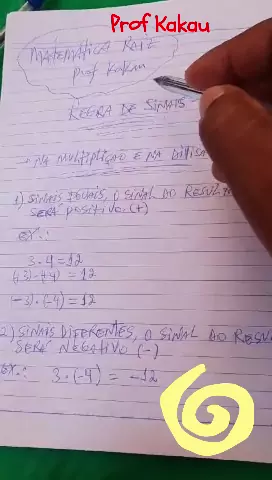 Prof Kakau
MATEMÁTICA RAIZ
Prof Kakau
REGRA DE SINAIS
NA MULTIPLIÇÃO E NA DIVISÃ
1) SINAIS IGUAIS, O SINAL DO RESULT
SERÁ POSITIVO. (+)
EX.:
3.4=12
(+3).(+4)=12
(-3).(-4)=12
2) SINAIS DIFERENTES, O SINAL DO RESU
SERÁ NEGATIVO (-)
EX.: 3.(-4) = -12